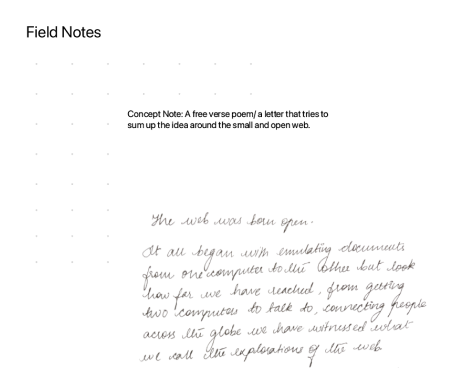 Field Notes
Concept Note: A free verse poem/ a letter that tries to
sum up the idea around the small and open web.
The web was born open.
It all began with emulating documents
from one computer to the other but look
how far we have reached, from getting
two computers to talk to, connecting people
across the globe we have witnessed what
we call the explorations of the web